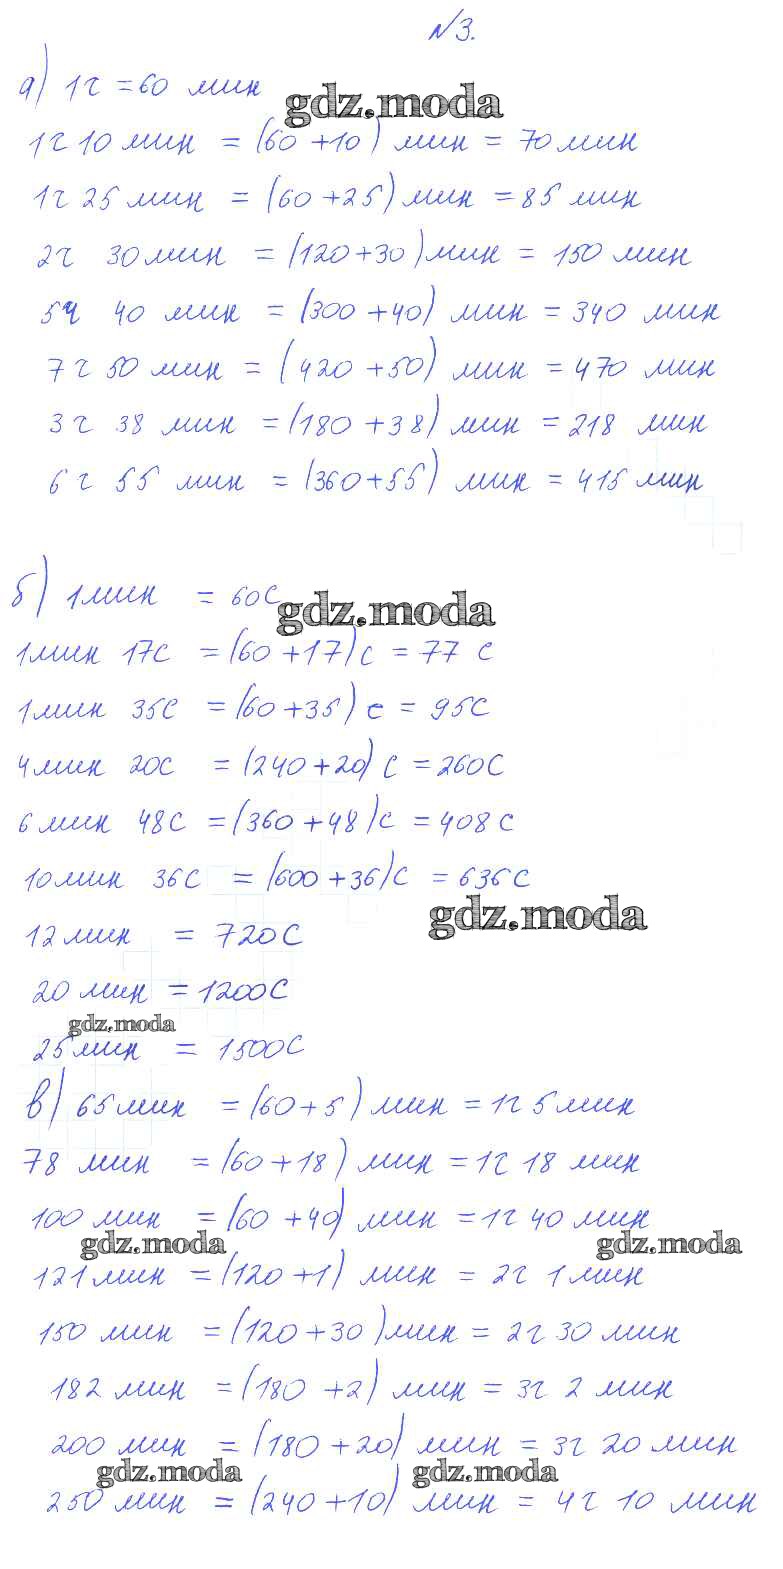 №3.
а) 1ч = 60 мин
gdz.moda
1ч 10 мин = (60 + 10) мин = 70 мин
1ч 25 мин = (60 + 25) мин = 85 мин
2ч 30 мин = (120 + 30) мин = 150 мин
5ч 40 мин = (300 + 40) мин = 340 мин
7ч 50 мин = (420 + 50) мин = 470 мин
3ч 38 мин = (180 + 38) мин = 218 мин
6ч 55 мин = (360 + 55) мин = 415 мин
б) 1 мин = 60с
gdz.moda
1 мин 17с = (60 + 17)с = 77 с
1 мин 35с = (60 + 35) с = 95с
4 мин 20с = (240 + 20) с = 260с
6 мин 48с = (360 + 48)с = 408 с
10 мин 36с = (600 + 36)с = 636с
gdz.moda
12 мин = 720с
20 мин = 1200с
gdz.moda
25 мин = 1500с
в) 65 мин = (60 + 5) мин = 1ч 5 мин
78 мин = (60 + 18) мин = 1ч 18 мин
100 мин = (60 + 40) мин = 1ч 40 мин
gdz.moda gdz.moda
121 мин = (120 + 1) мин = 2ч 1 мин
150 мин = (120 + 30) мин = 2ч 30 мин
182 мин = (180 + 2) мин = 3ч 2 мин
200 мин = (180 + 20) мин = 3ч 20 мин
gdz.moda gdz.moda
250 мин = (240 + 10) мин = 4ч 10 мин